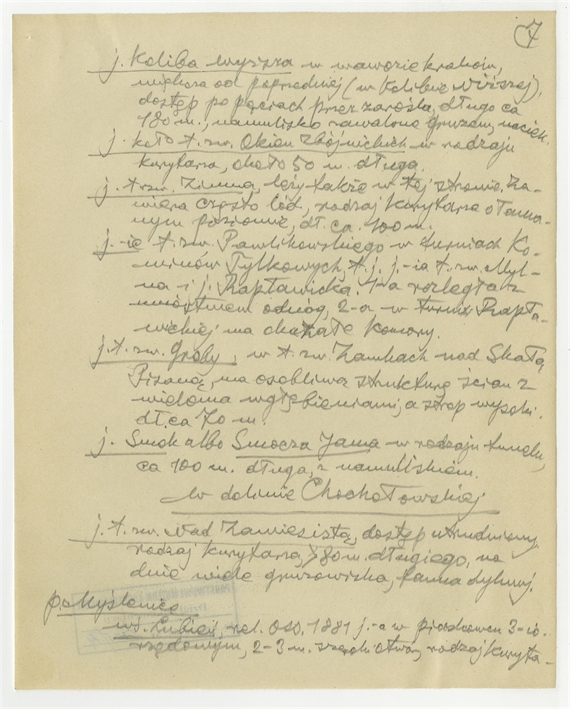 7
j. Koliba wyższa w wąwozie kraków,
większa od poprzedniej (w Kolibie Niższej),
dostęp po pięciach przez zarośla, długa ca
180 m., namulisko zawalone gruzem, naciek.
j. koło t. zw. Okien Zbójnickich w rodzaju
korytarza, około 50 m. długa.
j. t. zw. Zimna, leży także w tej stronie. Za-
wiera często lód, rodzaj korytarza o łama-
nym poziomie, dł. ca. 100 m.
j.-ie t. zw. Pawlikowskiego w turniach Ko-
minów Tylkowych, t. j. j.-ia t. zw. Myl-
na i j. Raptawicka. 1-a rozległa z
mnóstwem odnóg, 2-a w turni Rapta-
wickiej ma okazałe komory.
j. t. zw. Groby, w t. zw. Zamkach nad Skałą
Pisaną, ma osobliwą strukturę ścian z
wieloma wgłębieniami, a strop wysoki.
dł. ca 70 m.
j. Smok albo Smocza Jama w rodzaju tunelu,
ca 100 m. długa, z namuliskiem.
w dolinie Chochołowskiej
j. t. zw. Nad Zawiesistą, dostęp utrudniony
rodzaj korytarza, 80 m. długiego, na
dnie wiele gruzowiska, fauna
p. Myślenice
wś. Lubień, 1881 j.-a w piaskowcu 3-io
rzędowym, 2-3 m. szerok. otwór, rodzaj koryta-